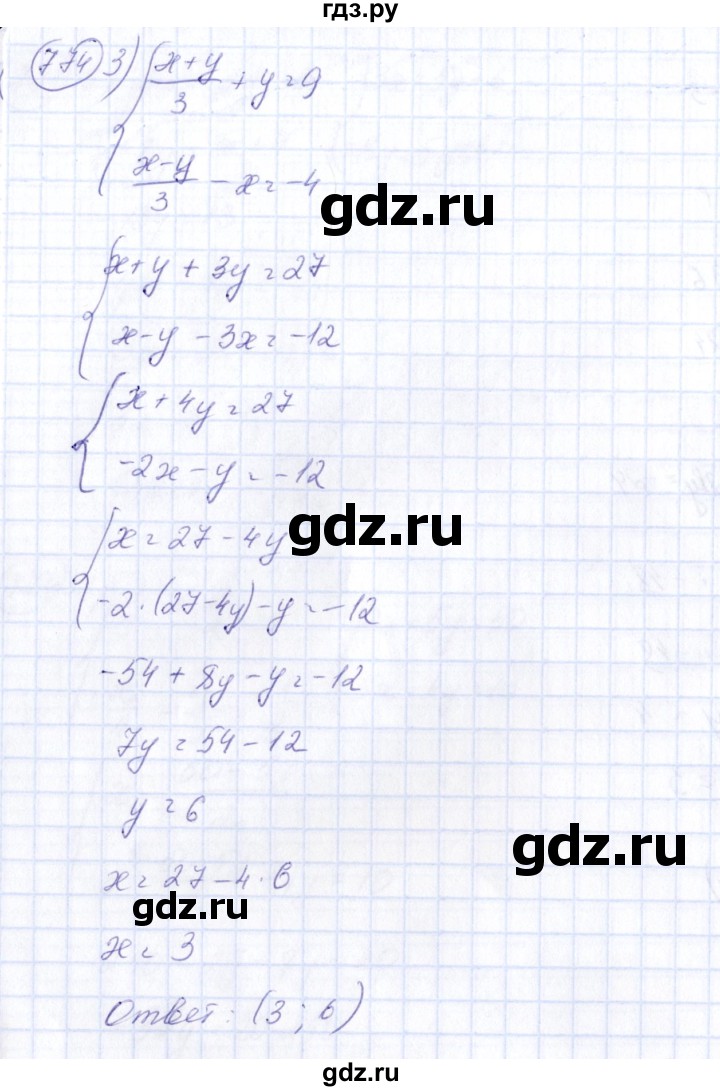 гдз.ру
774 3) { (x+y)/3 + y = 9
(x-y)/3 - x = -4
gdz.ru
{ x+y+3y=27
x-y-3x=-12
{ x+4y=27
-2x-y=-12
gdz.ru
{ x=27-4y
-2·(27-4y)-y=-12
-54+8y-y=-12
7y=54-12
y=6
gdz.ru
x=27-4·6
gdz.ru
x=3
Ответ: (3; 6)
gdz.ru